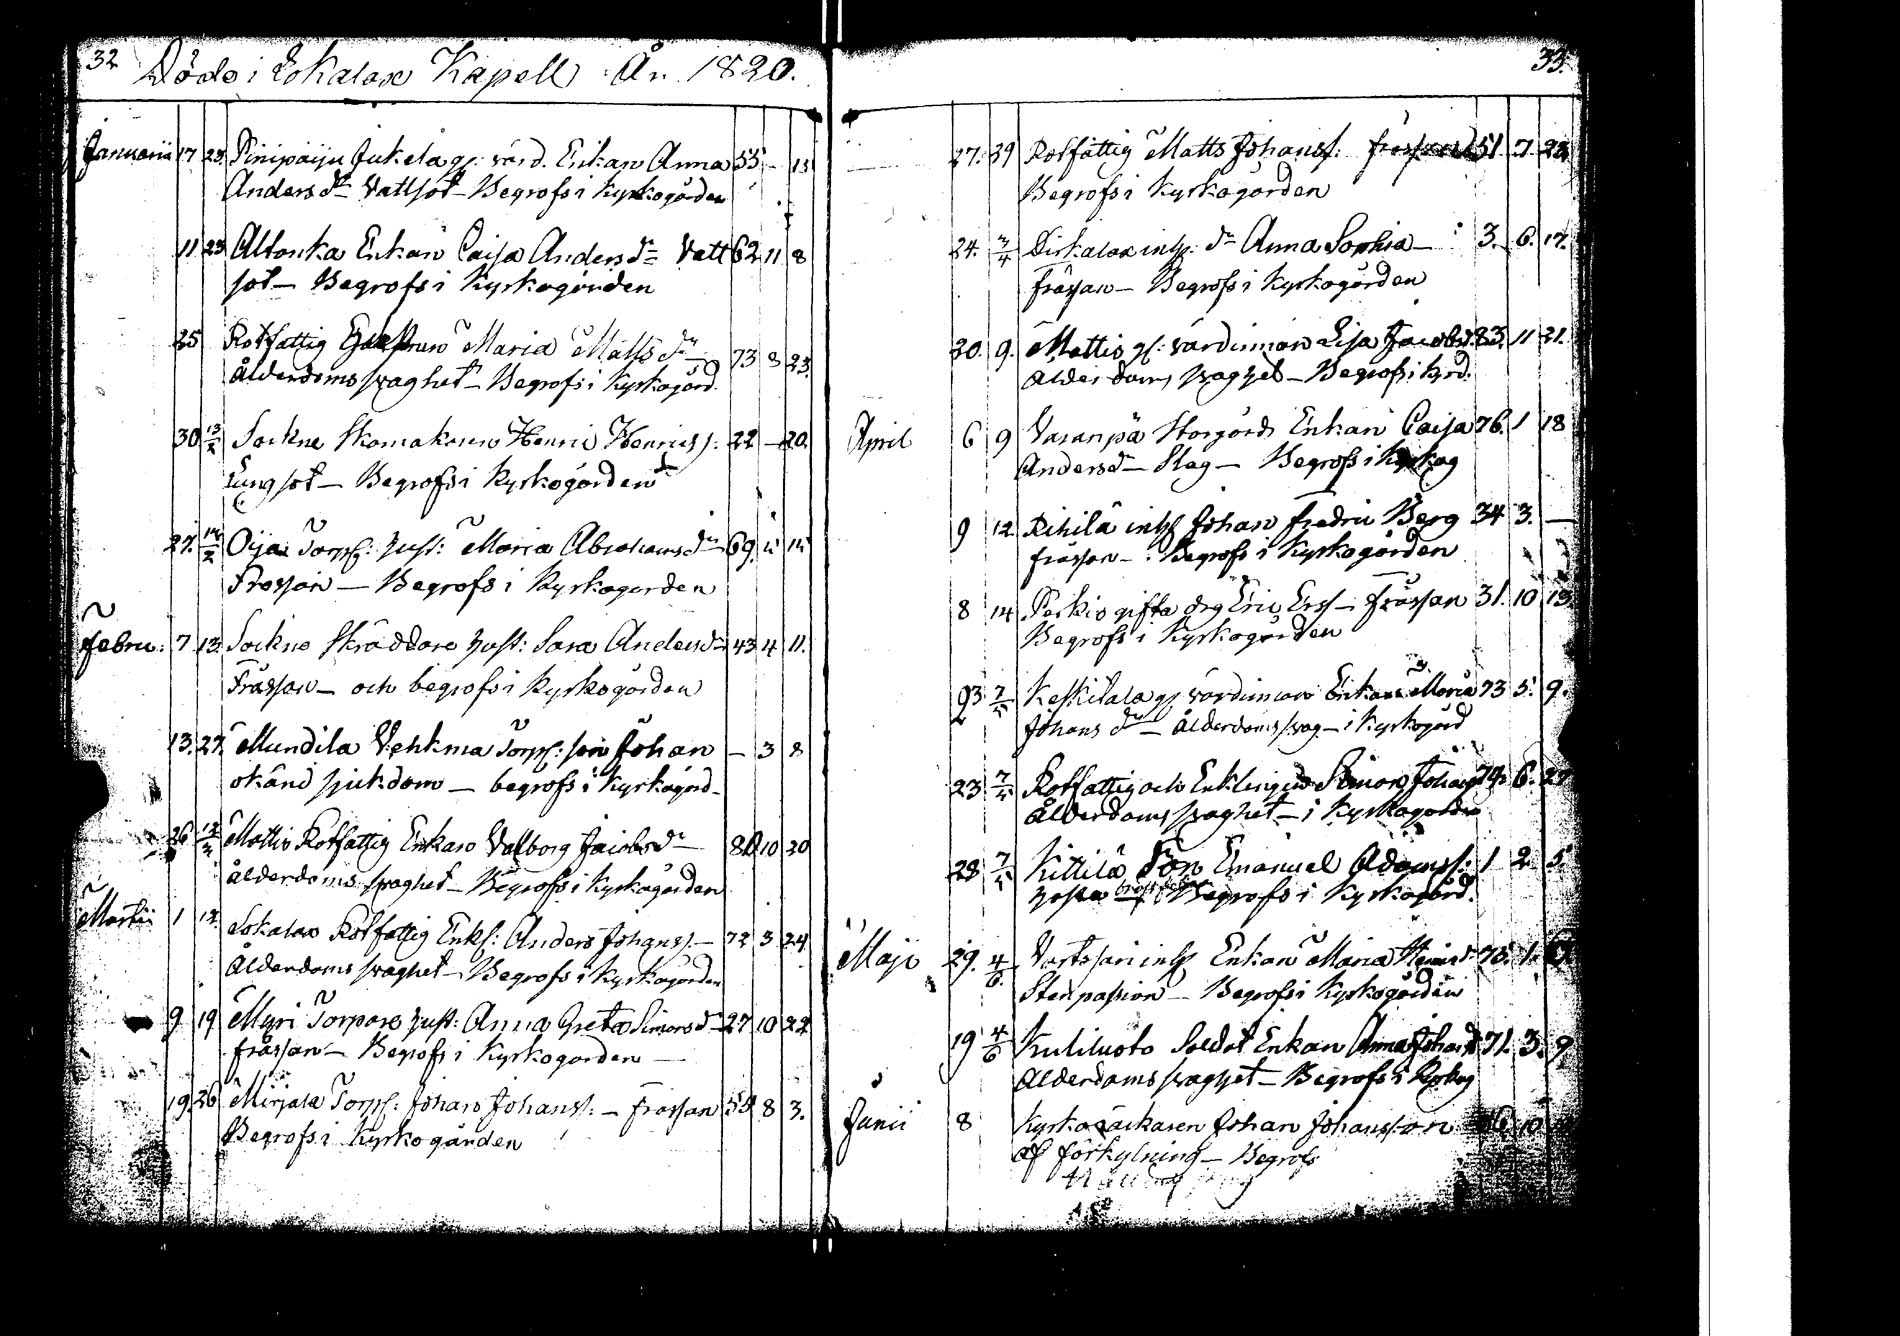 32
Döde i Lokalax Kapell År 1820.
Januarii 17 23. Pinipaiju Jukela gs: värd. Enkan Anna 55 - 15
Anders dr Vattsot - Begrofs i Kyrkogården
11 23 Altonka Enkan Caisa Anders dr Vatt 62 11 8
sot - Begrofs i Kyrkogården
25 Rotfattig Maria Matts dr 73 8 23.
Ålderdoms svaghet - Begrofs i Kyrkogård
30 13/2 Sockne Skomakaren Henric Henricss: 22 - 20.
Lungsot - Begrofs i Kyrkogården
27. 13/2 Oija Torps: hust: Maria Abrahams dr 69. 15
Frossan - Begrofs i Kyrkogården
Febru: 7 13. Sockne Skräddare hust: Sara Anders dr 43 4 11.
Frässan - och begrofs i Kyrkogården
13. 27. Mundila Vehkma Torps: son Johan - 3 8
okänd sjukdom - begrofs i Kyrkogård
26 12/3 Mattis Rotfattig Enkan Valborg Jacobs dr 80 10 20
Ålderdoms svaghet - Begrofs i Kyrkogården
Martii 1 12. Lokalax Rotfattig Enkl: Anders Johanss: - 72 3 24
Ålderdoms svaghet - Begrofs i Kyrkogården
9 19 Myri Torpare hust: Anna Greta Simons dr 27 10 22
frässan - Begrofs i Kyrkogården
19. 26 Mirjala Torps: Johan Johanss: - Frossan 58 8 3.
Begrofs i Kyrkogården
33.
27. 29 Rotfattig Matts Johanss: frossan 51 7 23
Begrofs i Kyrkogården
24. 3/4 inhs: dr Anna Sophia - 3. 6. 17.
frässan - Begrofs i Kyrkogården
30. 9. Mattis gs: värdinnan Lisa Jacobsd. 83. 11 21.
Ålderdoms svaghet - Begrofs i Kyrd.
April 6 9 Varanpä Storgårds Enkan Caisa 76. 1 18
Anders dr Slag - Begrofs i Kyrkog
9 12 Rihilä inhs Johan Fredric Berg 34 3. -
frässan - Begrofs i Kyrkogården
8 14 Perkio gifta drg Eric Erss - Frässan 31. 10 13.
Begrofs i Kyrkogården
23 7/5 Keskitala gs värdinnan Enkan Maria 73 5. 9.
Johans dr - Ålderdoms svag - i Kyrkogård
23 7/5 Rotfattig och Enklingen Simon Johanss 74. 6. 27
Ålderdoms svaghet - i Kyrkogården
28 7/5 Kittilä Son Emanuel Adamss: 1 2 5.
hosta Begrofs i Kyrkogård.
Maji 29. 4/6. Vartsari inhs Enkan Maria 75. 1.
Stenpassion - Begrofs i Kyrkogården
19 4/6 Kuliluoto Soldat Enkan Anna Johansd 71. 3. 9
Ålderdoms svaghet - Begrofs i Kyrkog
Junii 8 Kyrko väckaren Johan Johansson 10
af förkylning - Begrofs